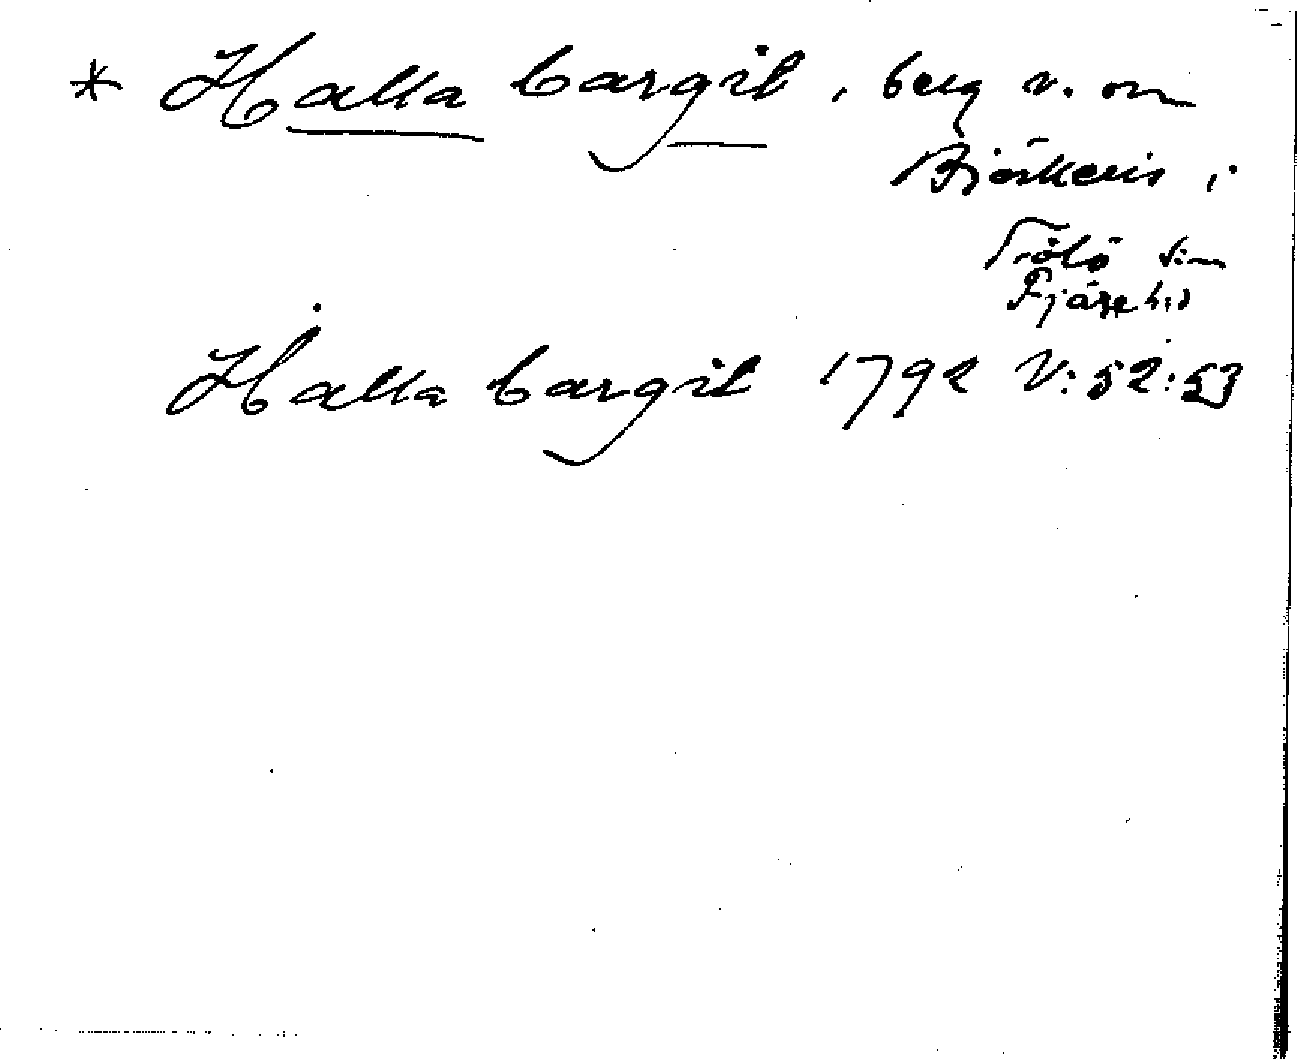 * Halla bargil, berg v. om
Björkeris i
Tölö sn
Fjäre hd
Halla bargil 1792 V:52:53